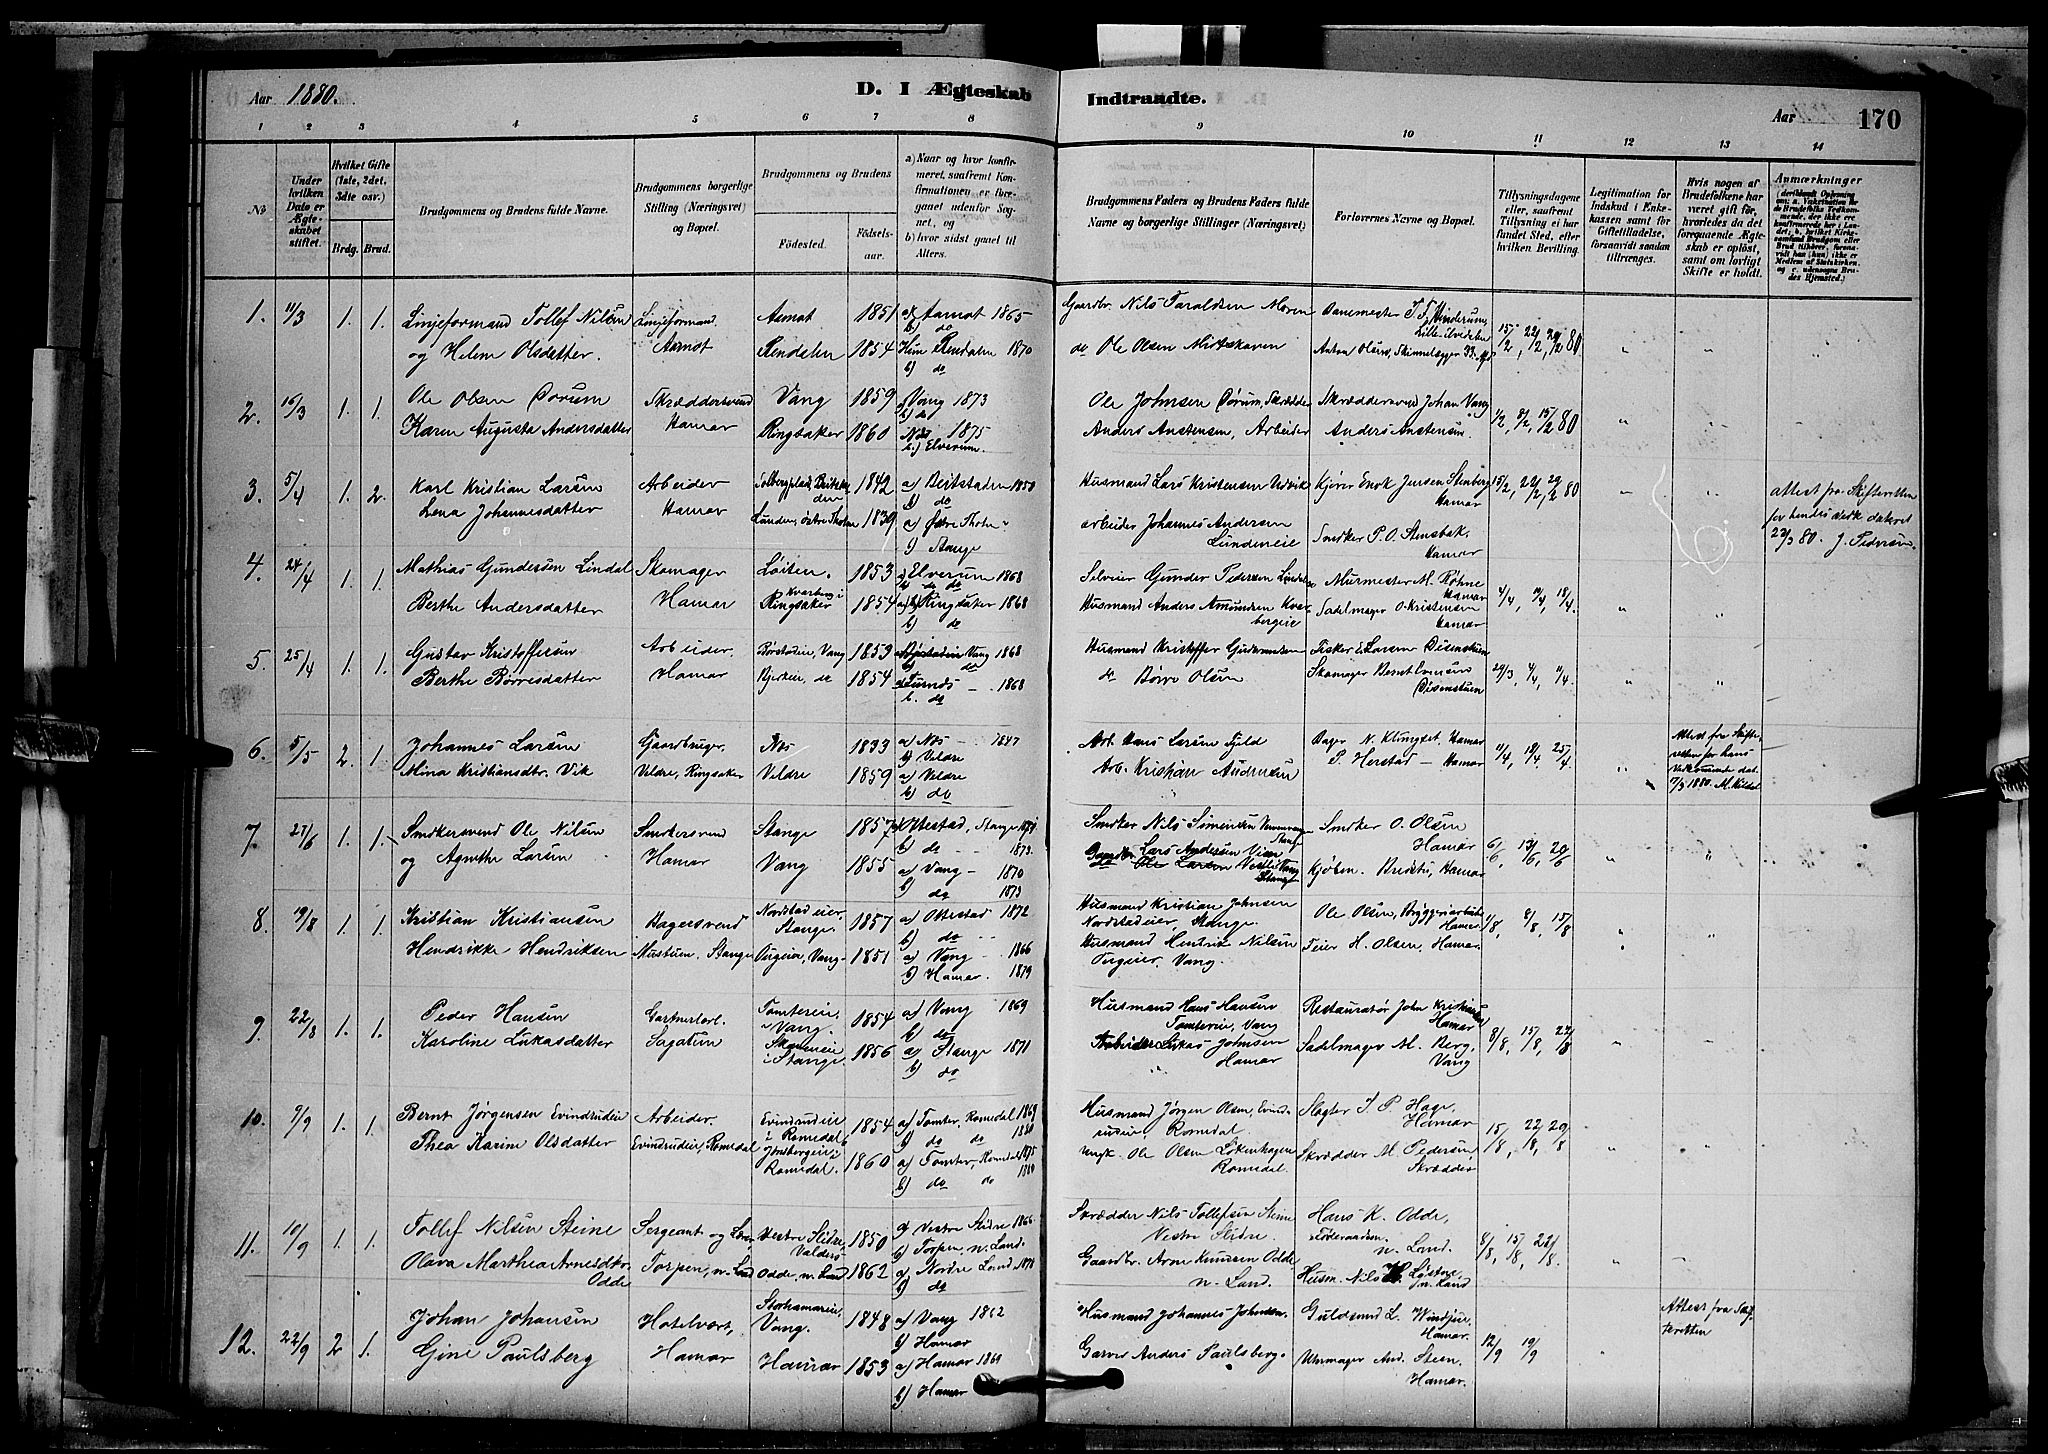 Aar 1880. D. I Ægteskab Indtraadte. Aar 170
1 2 3 4 5 6 7 8 9 10 11 12 13 14
№
Under hvilken Dato er Ægteskabet stiftet.
Hvilket Gifte (1ste, 2det, 3die osv.).
Brdg. Brud.
Brudgommens og Brudens fulde Navne.
Brudgommens borgerlige Stilling (Næringsvei) og Bopæl.
Brudgommens og Brudens
Födested. Födselsaar.
a) Naar og hvor konfirmeret, saafremt Konfirmationen er foregaaet udenfor Sognet, og
b) hvor sidst gaaet til Alters.
Brudgommens Faders og Brudens Faders fulde Navne og borgerlige Stillinger (Næringsvei)
Forlovernes Navne og Bopæl.
Tillysningsdagene eller, saafremt Tillysning ei har fundet Sted, efter hvilken Bevilling.
Legitimation for Indskud i Enkekassen samt for Giftetilladelse, forsaavidt saadan tiltrænges.
Hvis nogen af Brudefolkene har været gift før, hvorledes da det foregaaende Ægteskab er oplöst, samt om lovligt Skifte er holdt.
Anmærkninger
1. 11/3 1. 1. Linjeformand Tollef Nilsen Linjeformand. Aamot 1851 a) Aamot 1865 Gaardbr. Nils Taraldsen Moren Banemester 15/2, 22/2, 29/2 80
og Helene Olsdatter. Aamot Rendalen 1854 Rendalen 1870 do Ole Olsen
b) do
2. 16/3 1. 1. Ole Olsen Dørum Skræddersvend Vang 1859 a) Vang 1873 Ole Johnsen Dørum, Skrædder Skræddersvend Johan Vang 1/2, 8/2, 15/2 80
Karen Augusta Andersdatter Hamar Ringsaker 1860 1875 Anders Anstensen, Arbeider Anders Anstensen.
b.) Elverum.
3. 5/4 1. 2. Karl Kristian Larsen Arbeider 1842 a) Beitstaden 1858 Husmand Lars Kristensen Udvik Kjører Enok Jensen Stenberg Hamar 15/2, 22/2, 29/2 80
Lena Johannesdatter Hamar Lunden, østre Thoten 1839 a) Østre Thoten arbeider Johannes Andersen Lundeneie Snedker P. O. Hamar
b) Stange
attest fra Skifteretten for hendes Vedk. dateret 23/3 80. J. Pedersen.
4. 24/4 1. 1. Mathias Gundersen Lindal Skomager Løiten. 1853 a) Elverum 1868 Selveier Gunder Pedersen Murmester M. Røhne Hamar 4/4, 11/4, 18/4.
Berthe Andersdatter Hamar Kvarberg i Ringsaker 1854 a) Ringsaker 1868 Husmand Anders Amundsen Kvarbergeie Sadelmager O. Kristensen Hamar
b) do
5. 25/4 1. 1. Gustav Kristoffersen Arbeider. Børstadeie, Vang 1853 Vang 1868 Husmand Kristoffer Gudmundsen Fisker L. Larsen Disenstuen 29/3, 4/4, 11/4.
Berthe Børresdatter Hamar Bjerkeie, do 1854 a) Furnes - 1868 do Børre Olsen Skomager Bernt Evensen Disenstuen
b. do
6. 5/5 2. 1. Johannes Larsen Gaardbruger. Næs 1833 a) Næs - 1847 Arb. Hans Larsen Fjeld Bager N. Klungset, Hamar 11/4, 18/4, 25/4
b) Veldre
Mina Kristiansdtr. Vik Veldre, Ringsaker Veldre 1859 a) Veldre Arb. Kristian Andersen P. Herstad - Hamar
b) do
Attest fra Skifteretten for hans Vedkommende dat. 7/3 1880.
7. 27/6 1. 1. Snedkersvend Ole Nilsen Snedkersvend Stange 1857 a) Ottestad, Stange Snedker Nils Simensen Snedker O. Olsen Hamar 6/6, 13/6, 20/6
b) do 1873.
og Agnethe Larsen Hamar Vang 1855 a) Vang - 1870 Lars Andersen Kjøbm. Bredstu, Hamar
b) do 1873
8. 19/8 1. 1. Kristian Kristiansen Bagersvend Nordstadeier, Stange. 1857 a) Ottestad 1872 Husmand Kristian Johnsen Nordstadeier, Stange. Ole Olsen, Bryggeriarbeider Hamar 1/8, 8/8, 15/8
b) do
Hendrikke Hendriksen Mustuen, Stange Vang. 1851 a) Vang - 1866 Husmand Hendrik Nilsen Feier H. Olsen, Hamar.
b) Hamar. 1879 Vang.
9. 22/8 1. 1. Peder Hansen Gartnerlærl. Tomtereie, Vang. 1854 a) Vang 1869 Husmand Hans Hansen Tomtereie, Vang Restauratør John Kristiansen Hamar 8/8, 15/8, 22/8
b) do
Karoline Lukasdatter Sagatun Stange. 1856 a) Stange 1871 Arbeider Lukas Johnsen Hamar Sadelmager M. Berg, Vang
b) do
10. 9/9 1. 1. Bernt Jørgensen Evindrudeie Arbeider. Evindrudeie i Romedal 1854 a) Tomter, Romedal 1869 Husmand Jørgen Olsen, Evindrudeie, Romedal. Slagter J. P. Hage, Hamar 15/8, 22/8, 29/8
b) do do 1880
Thea Karine Olsdatter Evindrudeie, Romedal Romedal. 1860 a) Tomter, Romedal 1875 Ungk. Ole Olsen Løkenhagen Romedal Skrædder M. Pedersen, Skrædder
b) do do
11. 10/9 1. 1. Tollef Nilsen Steine Sergeant og Vestre Slidre, Valders 1850 a) Vestre Slidre 1866. Skrædder Nils Tollefsen Steine Vestre Slidre Hans K. Odde, Føderaadsm. n. Land. 8/8, 15/8, 22/8.
b) Torpen, n. Land.
Olava Marthea Arnesdtr. Odde Torpen, n. Land Odde, n. Land 1862 a) Nordre Land Gaardbr. Arne Knudsen Odde n. Land. Husm. Nils n. Land
b) do
12. 22/9 2 1. Johan Johansen Hotelvært, Storhamareie, Vang. 1848 a) Vang 1862 Husmand Johannes Johnsen Guldsmed L. Hamar. 12/9 19/9
b) Hamar
Gine Paulsberg Hamar Hamar 1853 a) Hamar 1869 Garver Anders Paulsberg. Uhrmager And. Steen, Hamar.
b) Hamar
Attest fra Skifteretten